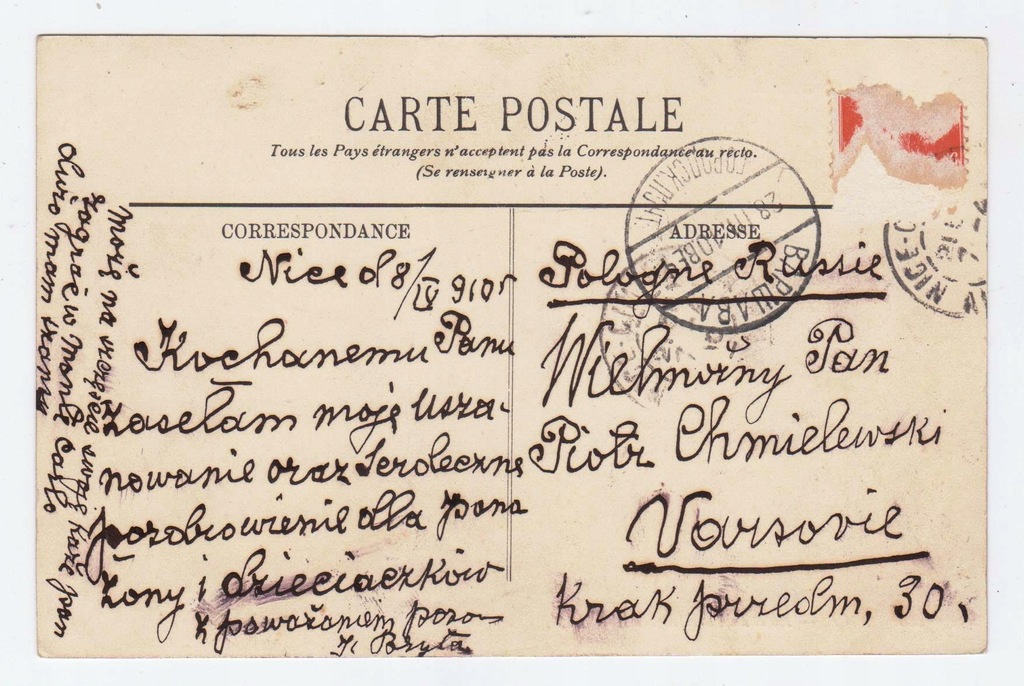 CARTE POSTALE
Tous les Pays étrangers n'acceptent pas la Correspondance au recto.
(Se renseigner à la Poste).
CORRESPONDANCE
Nice d 8/IV 910 r
Kochanemu Panu
zasełam moje Usza-
nowanie oraz Serdeczne
pozdrowienie dla pana
Żony i dzieciaczków
z poważaniem
Może na
zagrać w Monte Carlo
mam
ADRESSE
Pologne Russie
Wielmożny Pan
Piotr Chmielewski
Varsovie
Krak przedm, 30.
ВАРШАВА
NICE